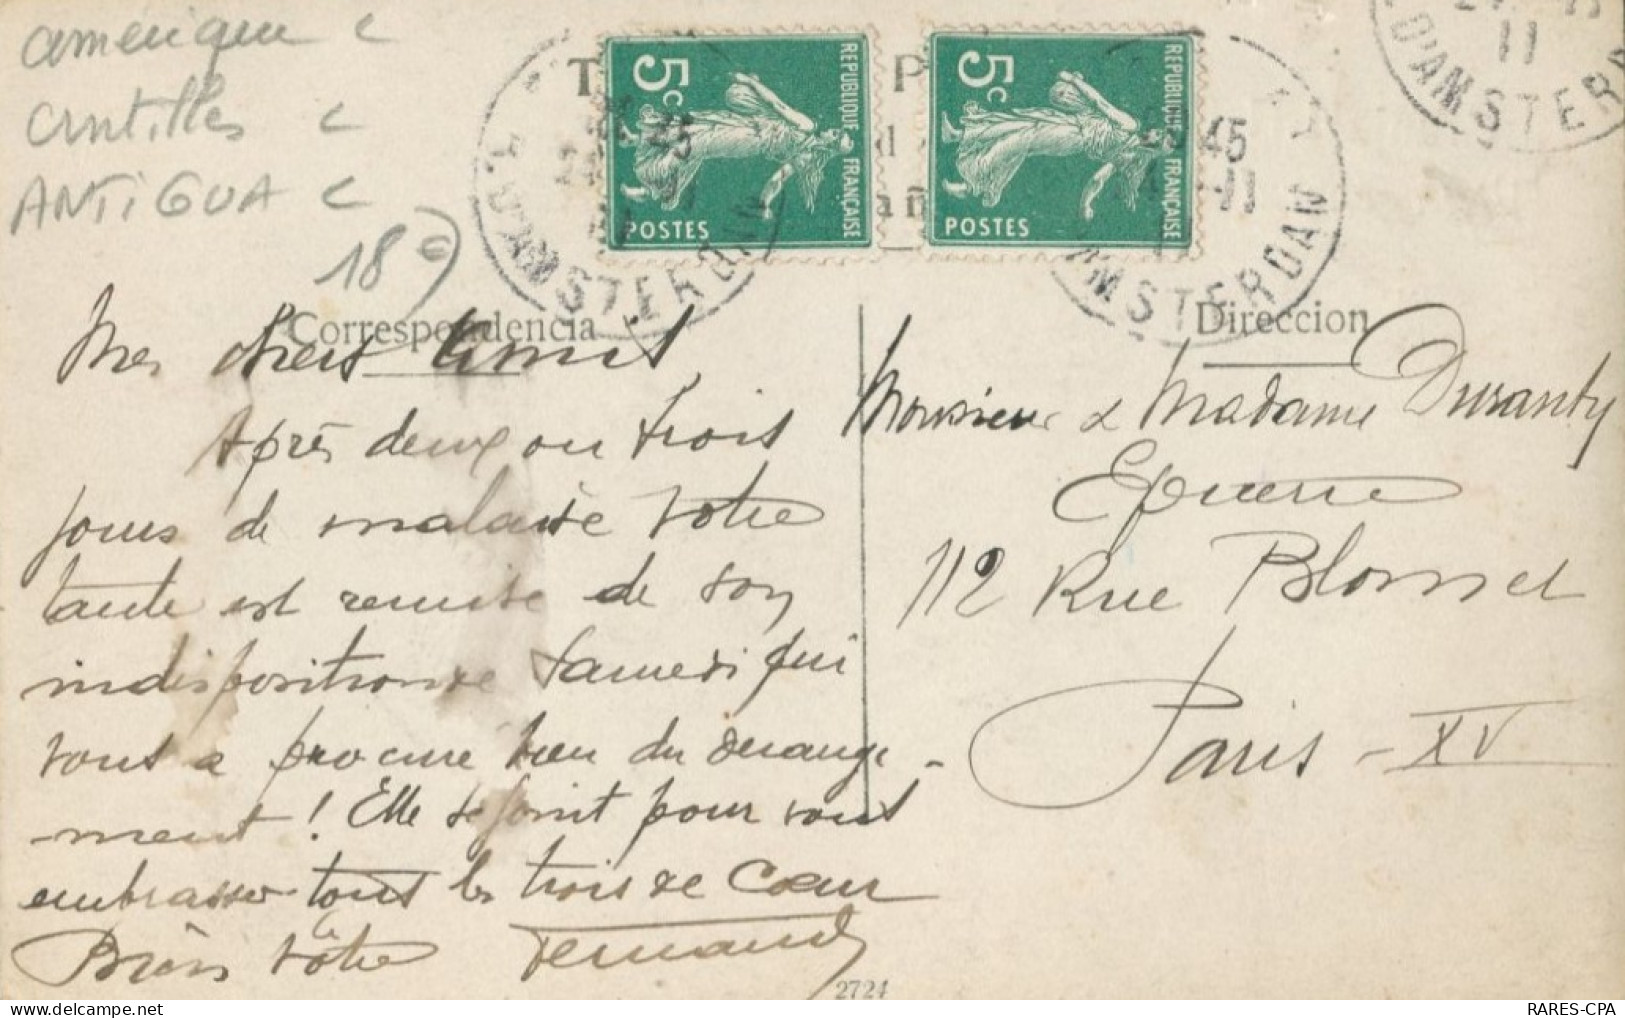 amérique c
antilles c
ANTIGUA c
18€
5c
REPUBLIQUE FRANÇAISE
POSTES
5c
REPUBLIQUE FRANÇAISE
POSTES
R. D'AMSTERDAM
45
11
D'AMSTERDAM
45
11
D'AMSTERDAM
11
Correspondencia
Direccion
Mes chers Amis
Après deux ou trois
jours de malaise votre
tante est remise de son
indisposition de Samedi qui
vous a procuré bien du derange-
-ment! Elle se joint pour vous
embrasser tous les trois de Cœur
Bien vôtre Fernand
Monsieur & Madame Duranty
112 Rue Blomet
Paris - XV
2724
RARES-CPA